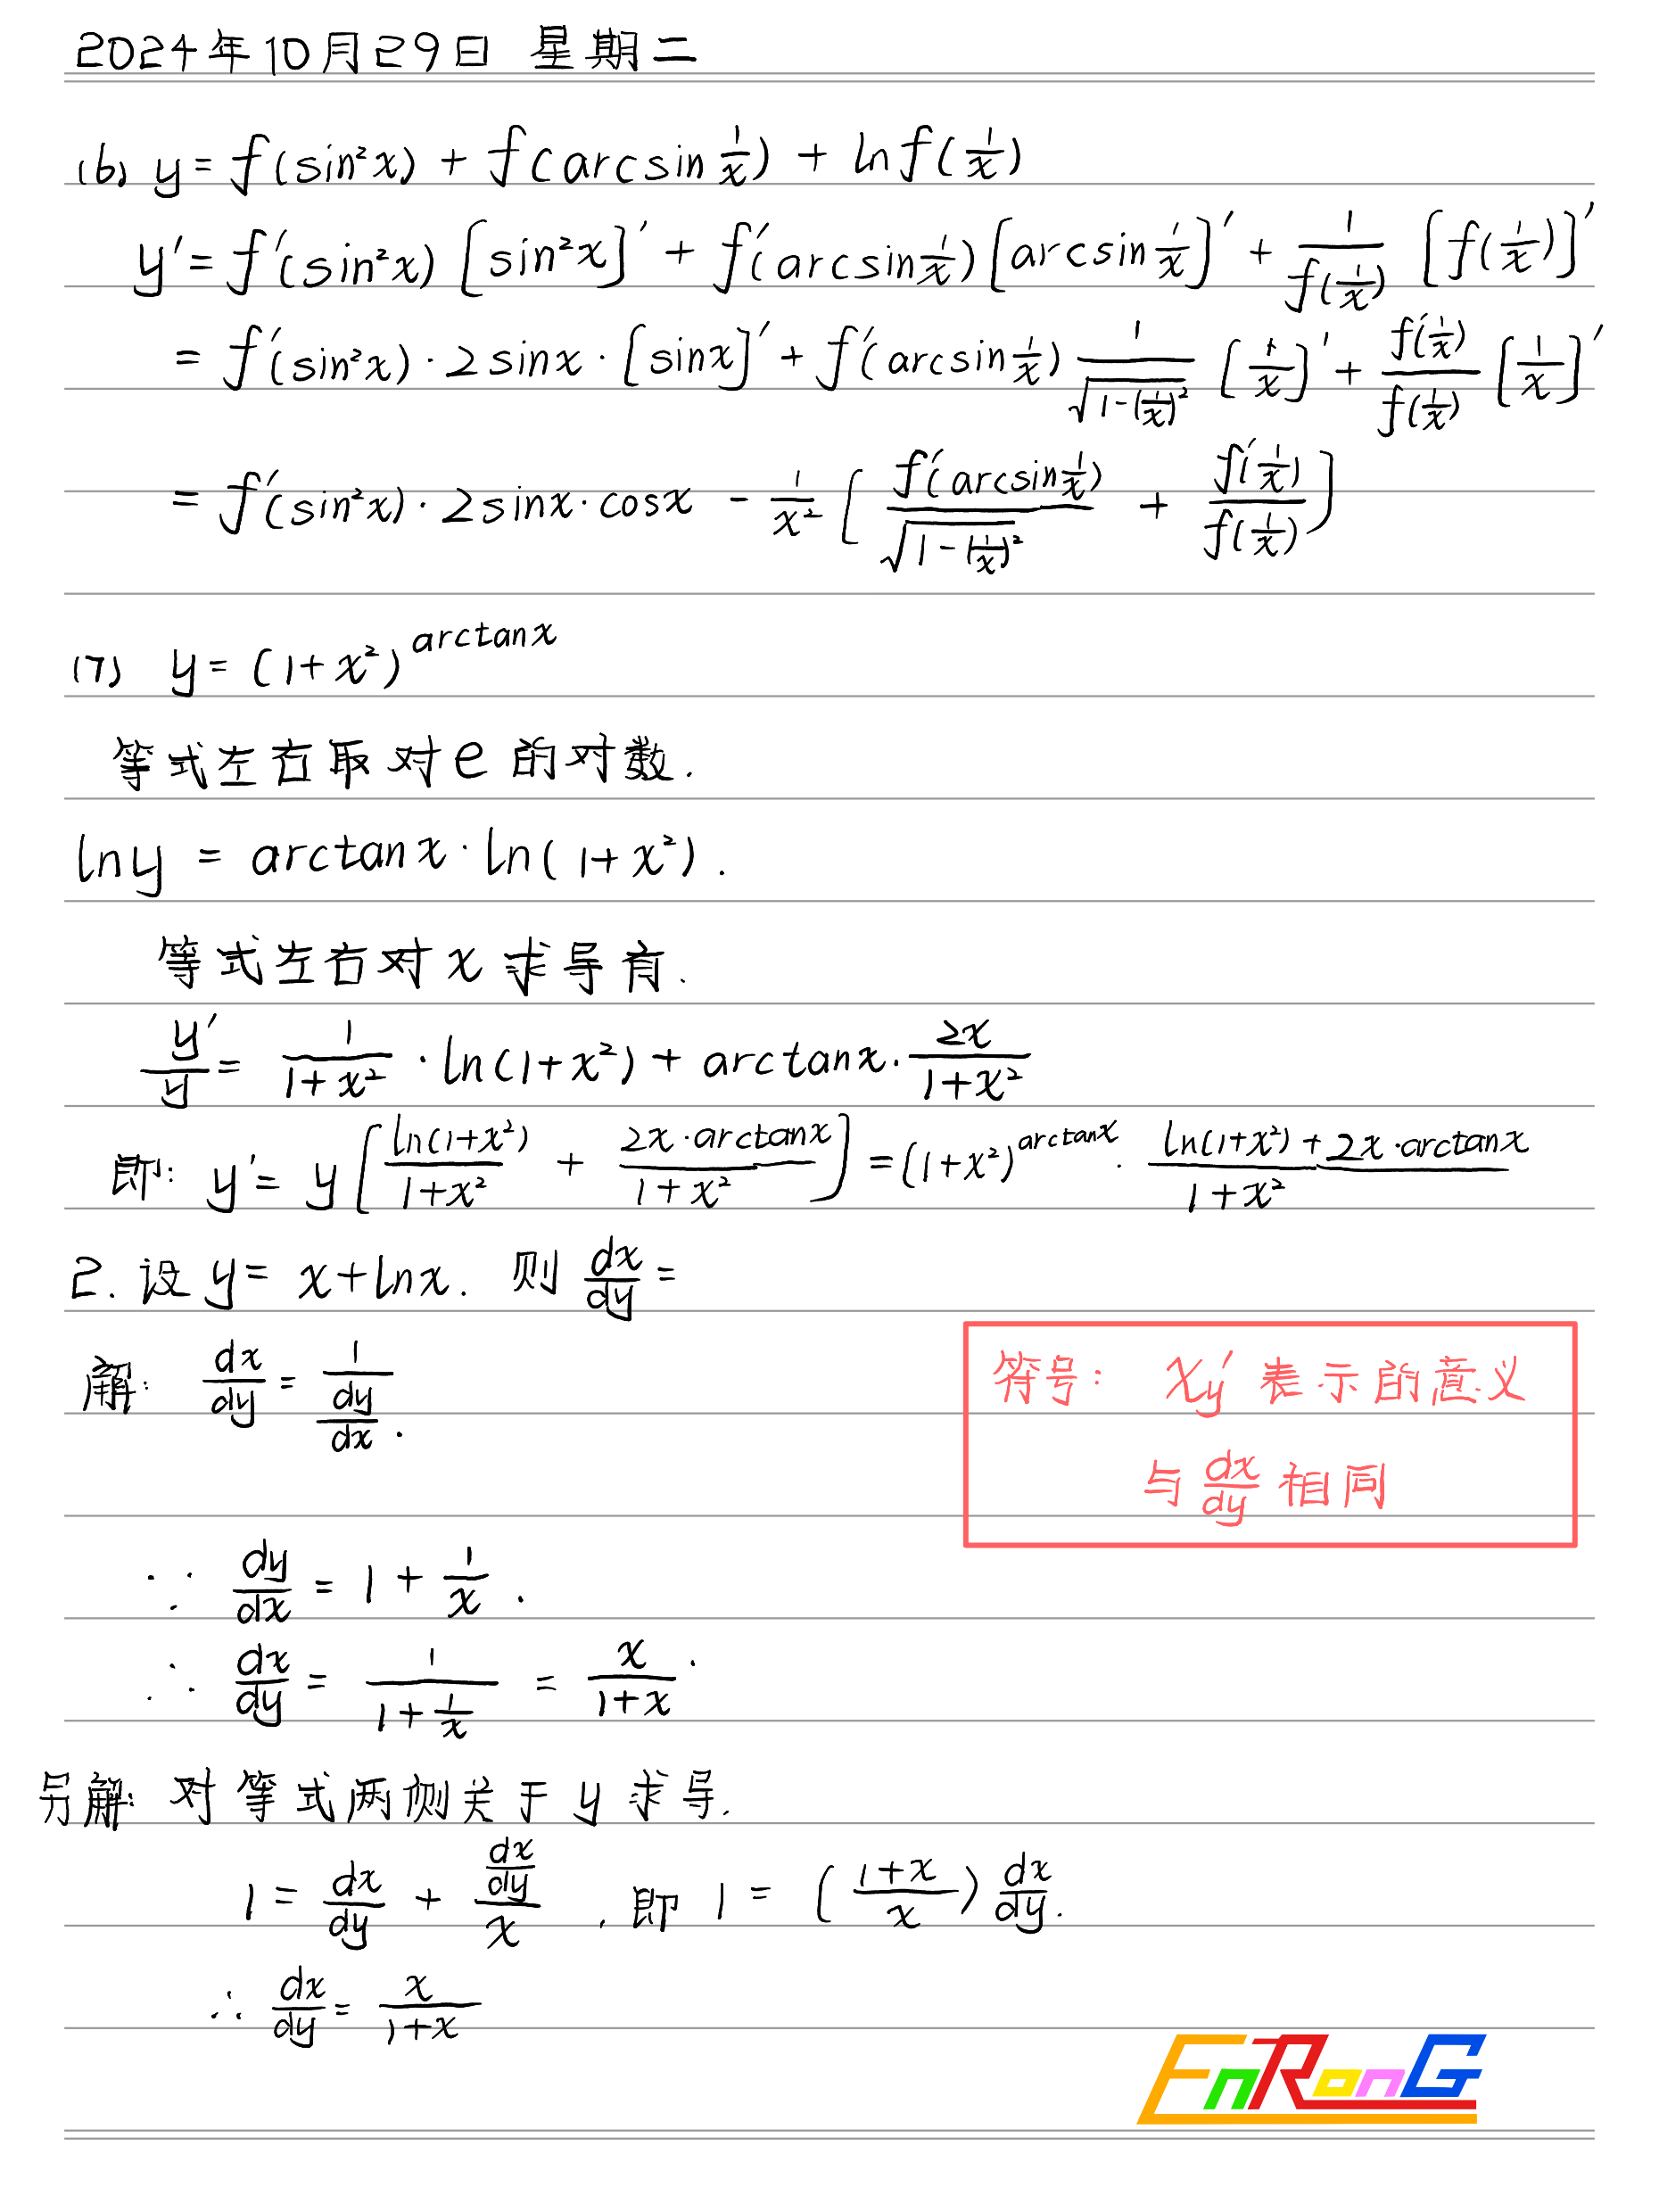 2024年10月29日 星期二
(6) y = f(sin²x) + f(arcsin 1/x) + ln f(1/x)
y' = f'(sin²x) [sin²x]' + f'(arcsin 1/x) [arcsin 1/x]' + 1/f(1/x) [f(1/x)]'
= f'(sin²x) · 2sinx · [sinx]' + f'(arcsin 1/x) 1/√(1-(1/x)²) [1/x]' + f'(1/x)/f(1/x) [1/x]'
= f'(sin²x) · 2sinx · cosx - 1/x² [f'(arcsin 1/x)/√(1-(1/x)²) + f'(1/x)/f(1/x)]
(7) y = (1+x²)^arctanx
等式左右取对e的对数.
lny = arctanx · ln(1+x²).
等式左右对x求导有.
y'/y = 1/(1+x²) · ln(1+x²) + arctanx · 2x/(1+x²)
即: y' = y [ln(1+x²)/(1+x²) + 2x·arctanx/(1+x²)] = (1+x²)^arctanx · (ln(1+x²)+2x·arctanx)/(1+x²)
2. 设 y = x+lnx. 则 dx/dy =
解: dx/dy = 1/(dy/dx).
符号: x'y 表示的意义
与 dx/dy 相同
∵ dy/dx = 1 + 1/x.
∴ dx/dy = 1/(1+1/x) = x/(1+x).
另解: 对等式两侧关于y求导.
1 = dx/dy + (dx/dy)/x , 即 1 = ((1+x)/x) dx/dy.
∴ dx/dy = x/(1+x)
EnRonG